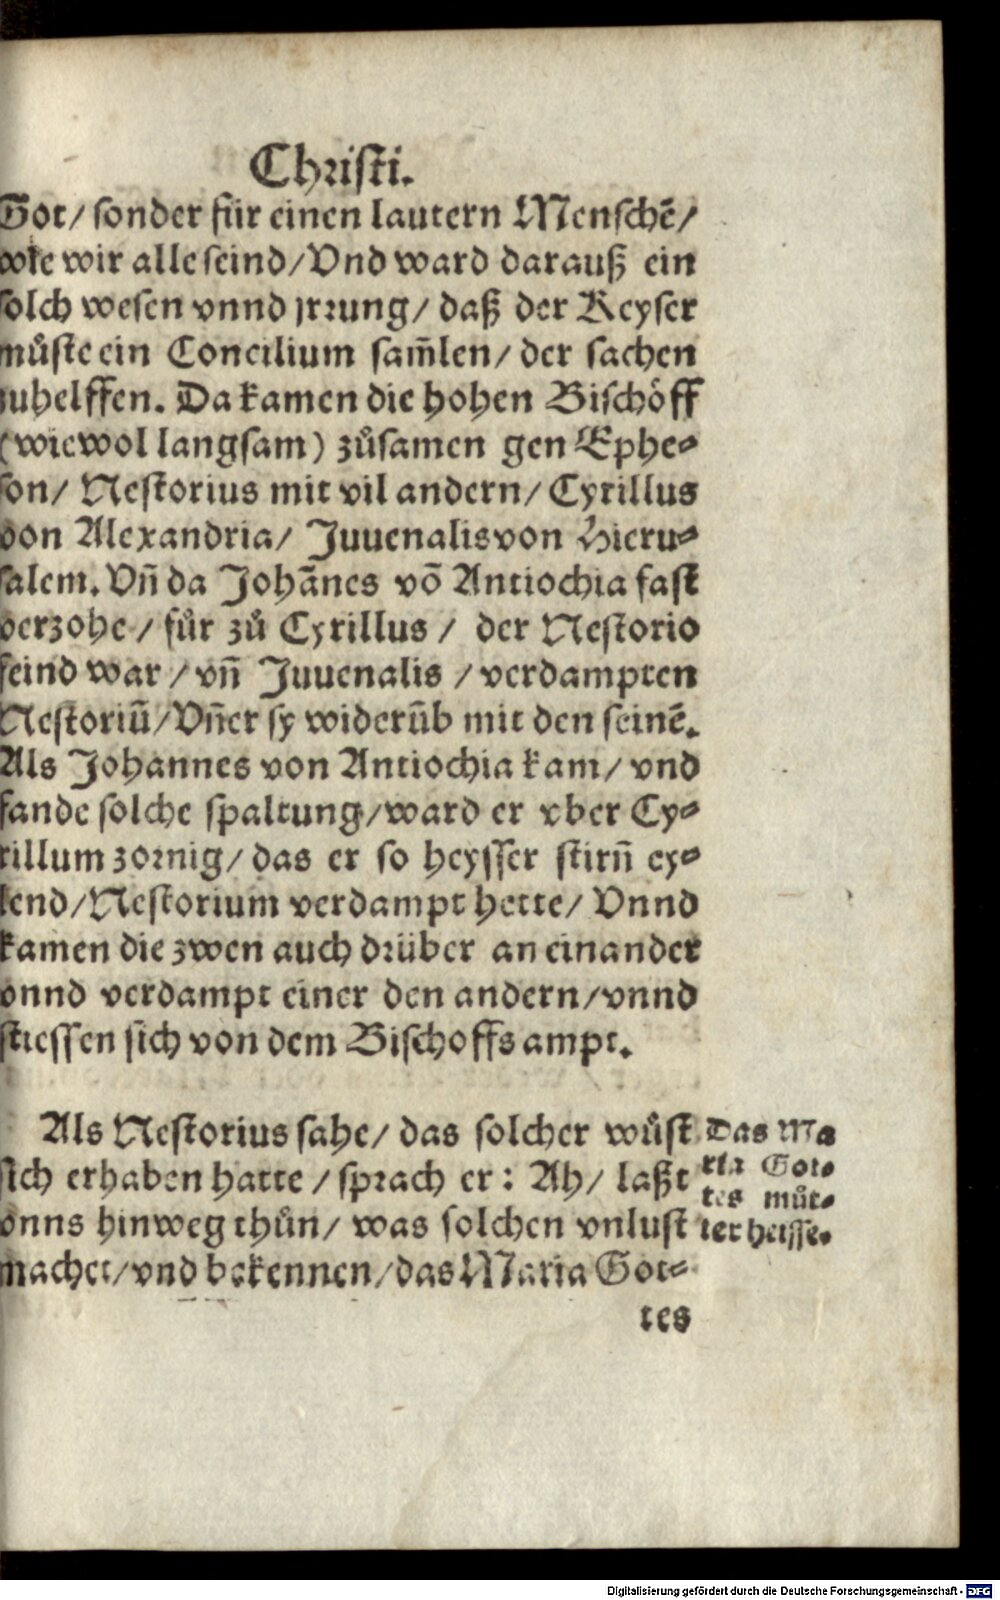 Christi.
Got/ sonder für einen lautern Menschẽ/
wie wir alle seind/Vnd ward darauß ein
solch wesen vnnd jrrung/ daß der Keyser
můste ein Concilium sam̃len/ der sachen
zuhelffen. Da kamen die hohen Bischöff
(wiewol langsam) zůsamen gen Ephe-
son/ Nestorius mit vil andern/ Cyrillus
von Alexandria/ Juuenalis von Hieru-
salem. Vñ da Johãnes võ Antiochia fast
verzohe/ fůr zů Cyrillus/ der Nestorio
feind war/ vñ Juuenalis/ verdampten
Nestoriũ/Vñ er sy widerũb mit den seinẽ.
Als Johannes von Antiochia kam/ vnd
fande solche spaltung/ward er vber Cy-
rillum zornig/ das er so heysser stirñ ey-
lend/Nestorium verdampt hette/ Vnnd
kamen die zwen auch drüber an einander
vnnd verdampt einer den andern/vnnd
stiessen sich von dem Bischoffs ampt.
Als Nestorius sahe/ das solcher wůst
sich erhaben hatte/ sprach er: Ah/ laßt
vnns hinweg thůn/ was solchen vnlust
machet/vnd bekennen/das Maria Got-
tes
Das Ma
ria Got-
tes můt-
ter heisse.
Digitalisierung gefördert durch die Deutsche Forschungsgemeinschaft - DFG